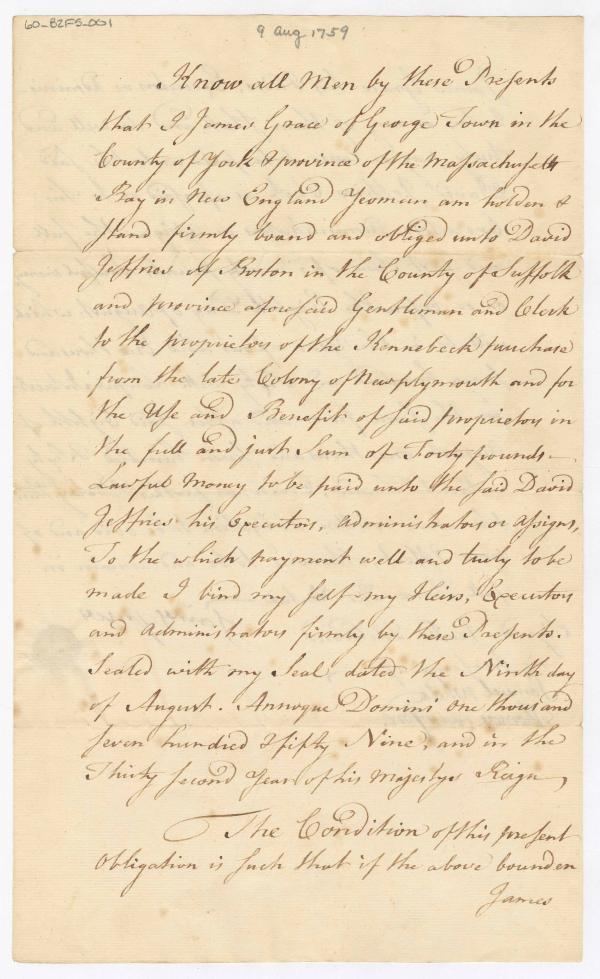 60-B2F5-001
9 Aug 1759
Know all Men by these Presents
that I James Grace of George Town in the
County of York & province of the Massachusetts
Bay in New England Yeoman am holden &
stand firmly bound and obliged unto David
Jeffries of Boston in the County of Suffolk
and province aforesaid Gentleman and Clerk
to the proprietors of the Kennebeck purchase
from the late Colony of New plymouth and for
the Use and Benefit of said proprietors in
the full and just Sum of Forty pounds
Lawful Money to be paid unto the said David
Jeffries his Executors, Administrators or Assigns,
To the which payment well and truly to be
made I bind my self my Heirs, Executors
and Administrators firmly by these Presents.
Sealed with my Seal dated the Ninth day
of August. Annoque Domini One thousand
seven hundred & fifty Nine, and in the
Thirty second Year of his Majestys Reign,
The Condition of this present
Obligation is such that if the above bounden
James